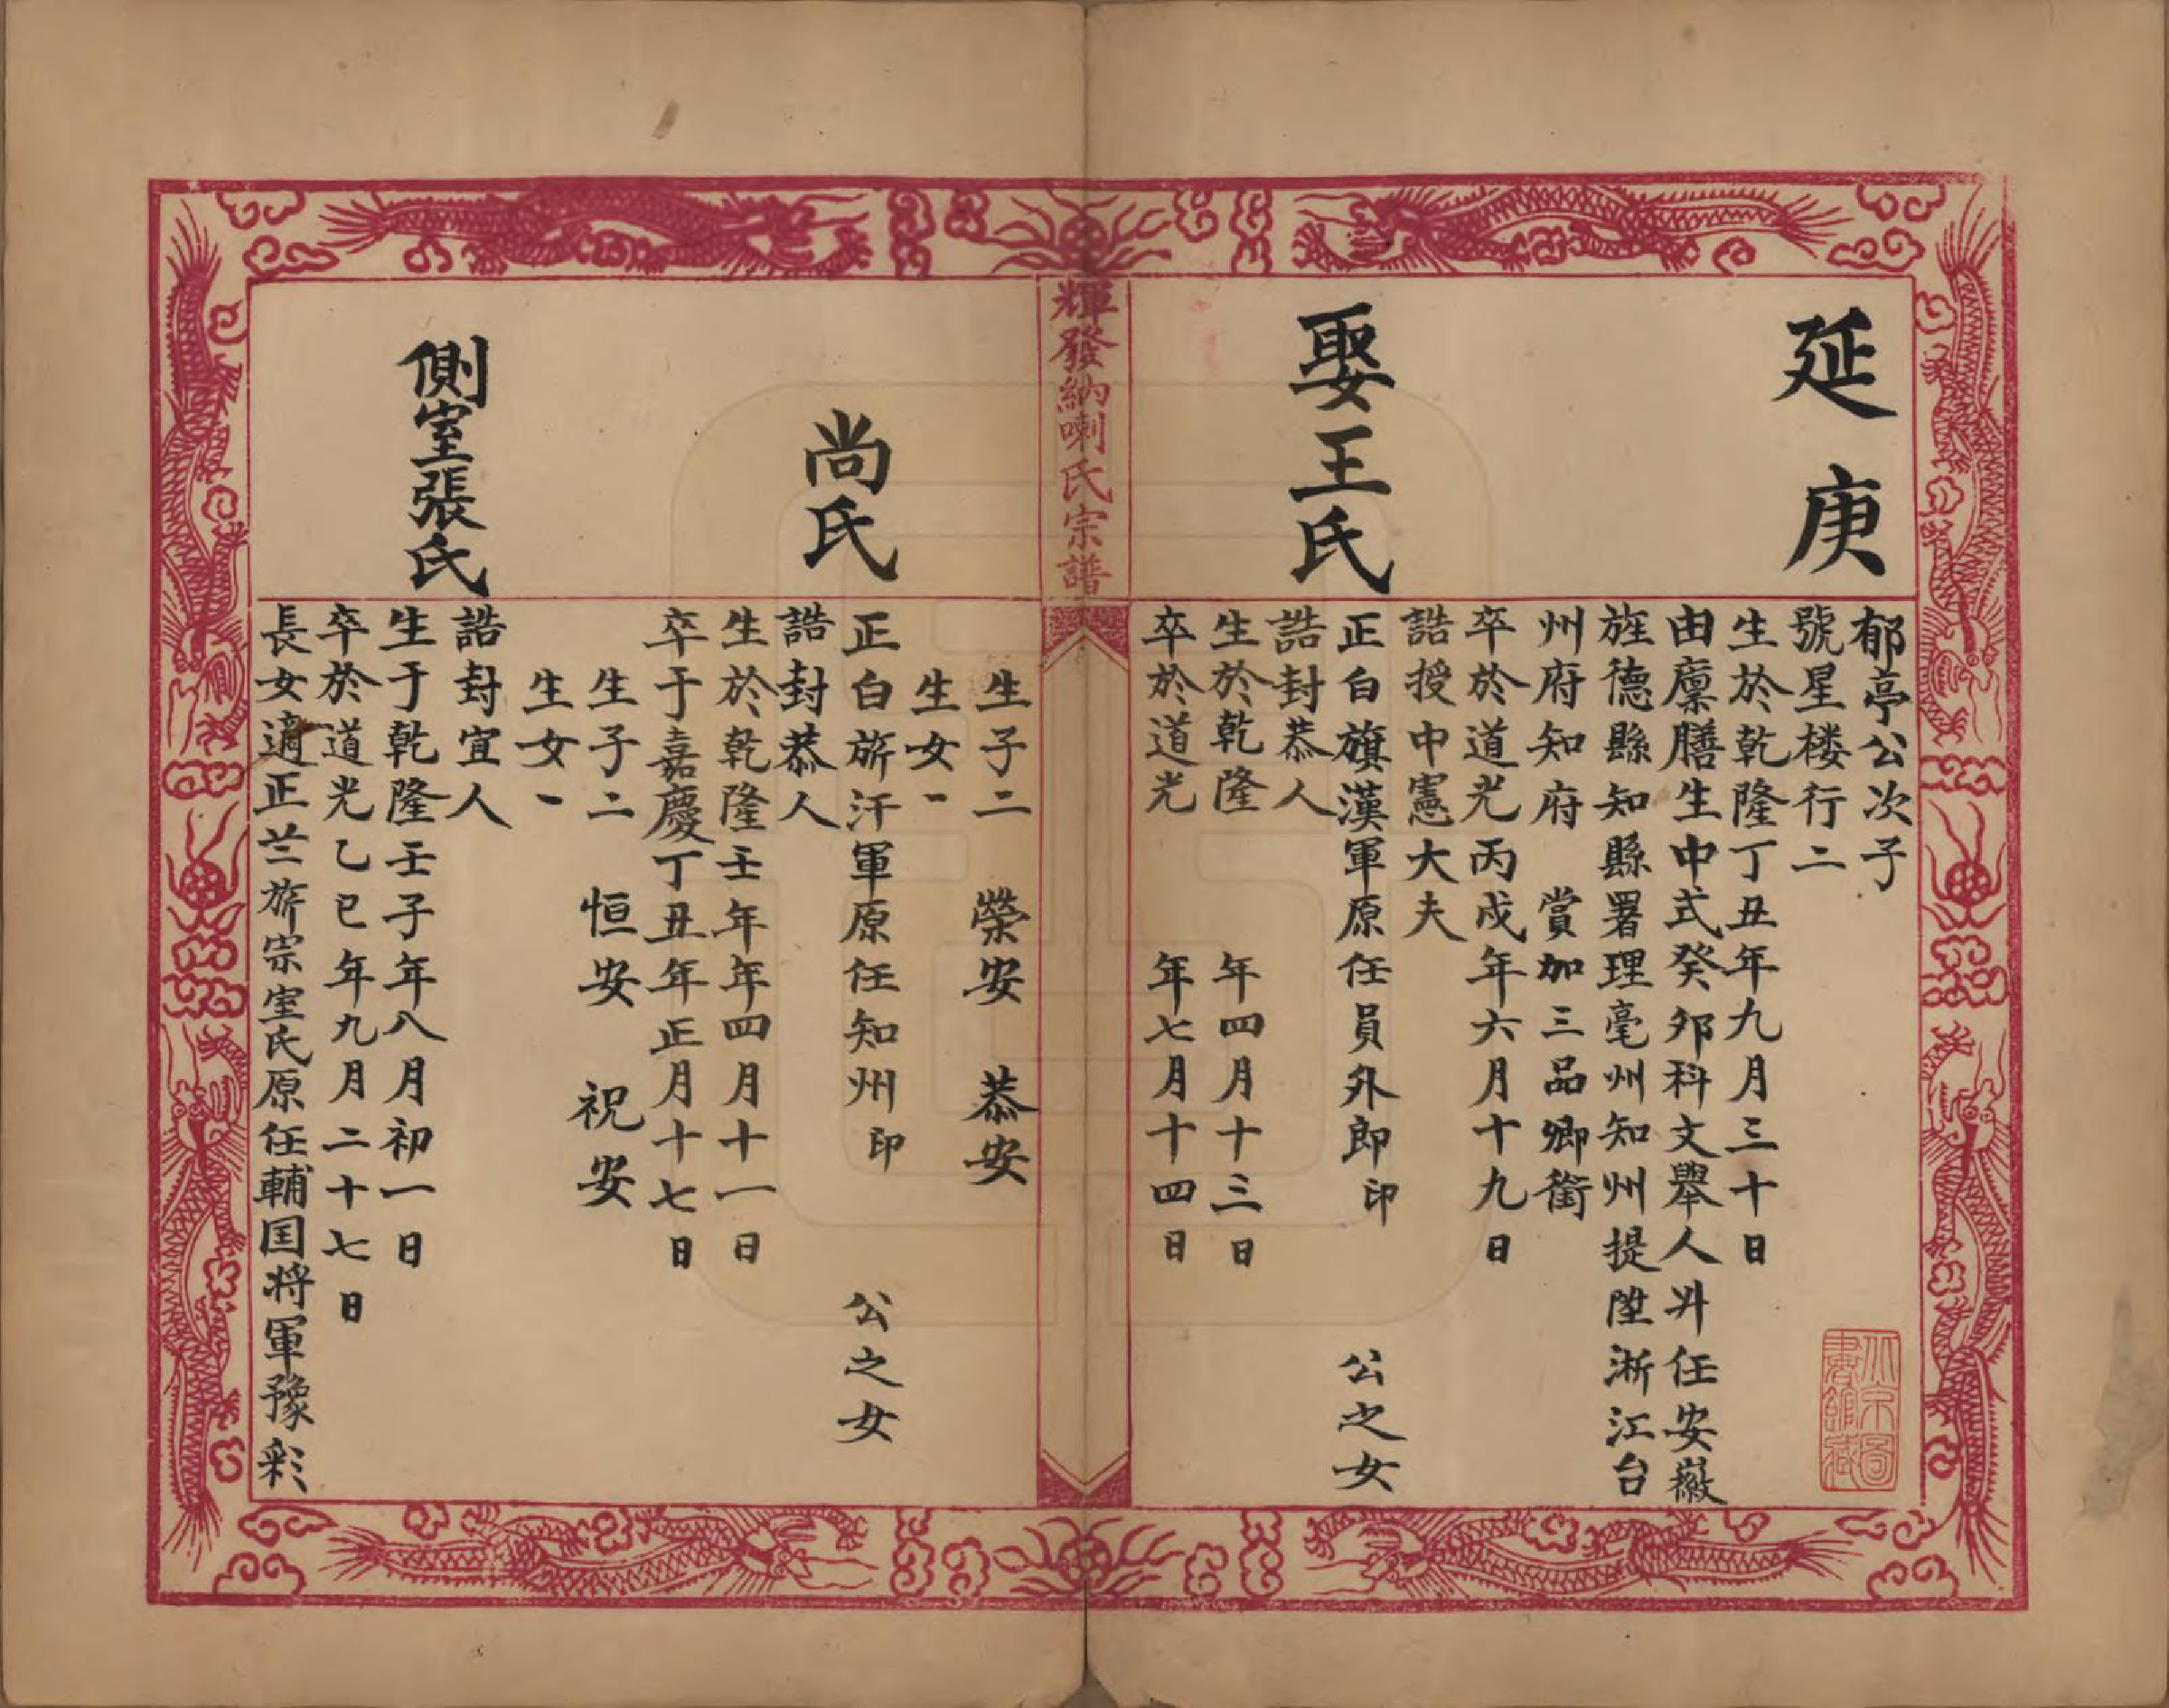 延庚
郁亭公次子
號星楼行二
生於乾隆丁丑年九月三十日
由廪膳生中式癸卯科文舉人升任安徽
旌德縣知縣署理亳州知州提陞淅江台
州府知府　賞加三品卿銜
卒於道光丙戌年六月十九日
誥授中憲大夫
娶王氏
正白旗漢軍原任員外郎印　公之女
誥封恭人
生於乾隆　年四月十三日
卒於道光　年七月十四日
輝發納喇氏宗譜
生子二　榮安　恭安
生女一
尚氏
正白旂汗軍原任知州印　公之女
誥封恭人
生於乾隆壬年年四月十一日
卒于嘉慶丁丑年正月十七日
生子二　恒安　祝安
生女一
側室張氏
誥封宜人
生于乾隆壬子年八月初一日
卒於道光乙巳年九月二十七日
長女適正兰旂宗室氏原任輔国将軍豫彩
北京圖
書館藏